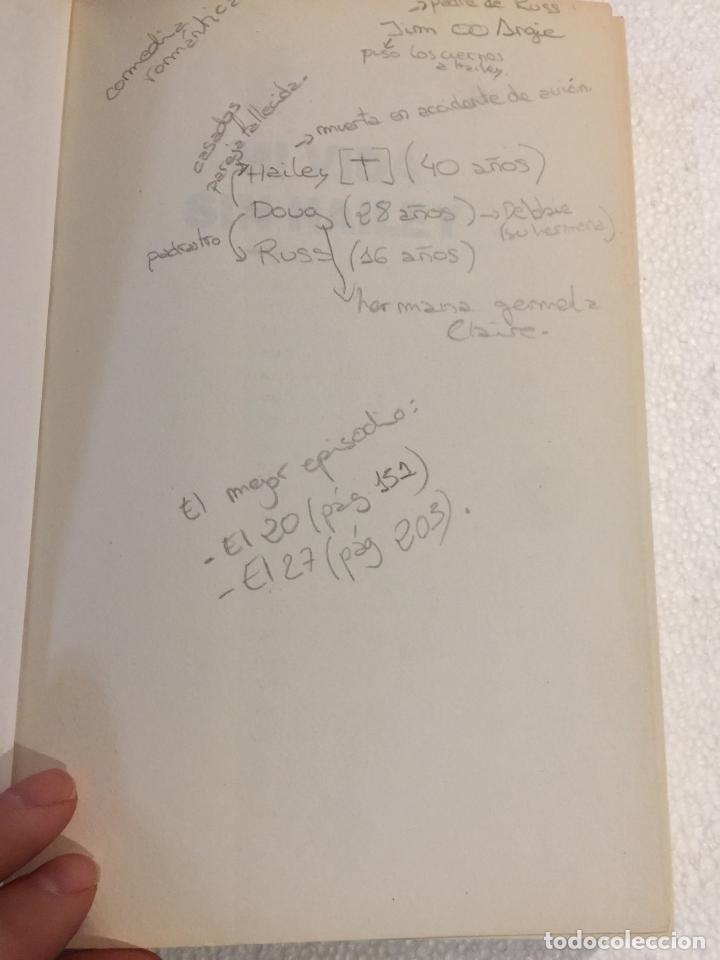 comedia
romántica
→padre de Russ
Jim ∞ Angie
puso los cuernos
a Hailey.
casados
pareja fallecida.
→muerta en accidente de avión.
Hailey [†] (40 años)
Doug (28 años) → Debbie
(su hermana)
padrastro
Russ (16 años)
hermana gemela
Claire.
El mejor episodio:
- El 20 (pág 151)
- El 27 (pág 203).
todocoleccion.net